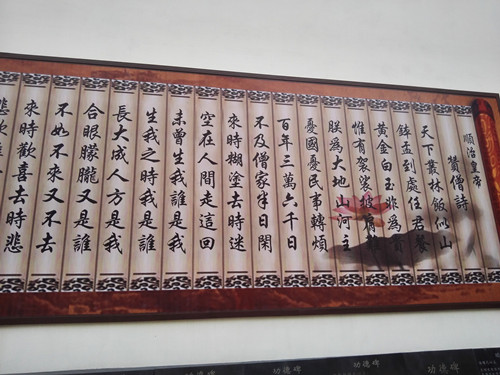 順治皇帝
贊僧詩
天下叢林飯似山
鉢盂到處任君餐
黃金白玉非為貴
惟有袈裟披肩難
朕為大地山河主
憂國憂民事轉煩
百年三萬六千日
不及僧家半日閒
來時糊塗去時迷
空在人間走這回
未曾生我誰是我
生我之時我是誰
長大成人方是我
合眼朦朧又是誰
不如不來又不去
來時歡喜去時悲
悲歡
功德碑
功德碑
功德碑